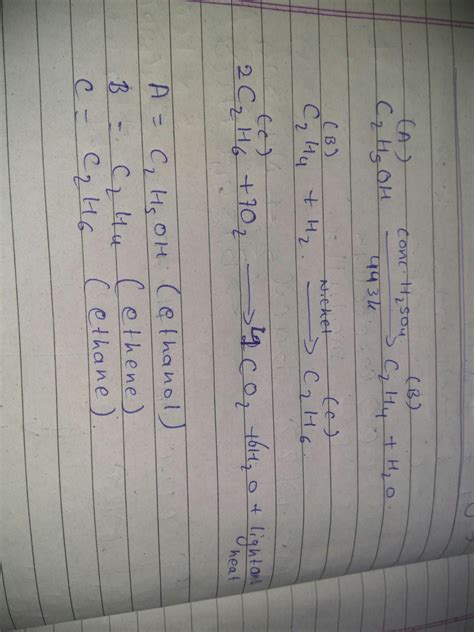 (A) (B)
C2H5OH → C2H4 + H2O.
conc. H2SO4
443k.
(B) (C)
C2H4 + H2. → C2H6.
Nickel
(C)
2C2H6 + 7O2 → 4CO2 + 6H2O + light and
heat
A = C2H5OH (ethanol)
B = C2H4 (ethene)
C = C2H6 (ethane).